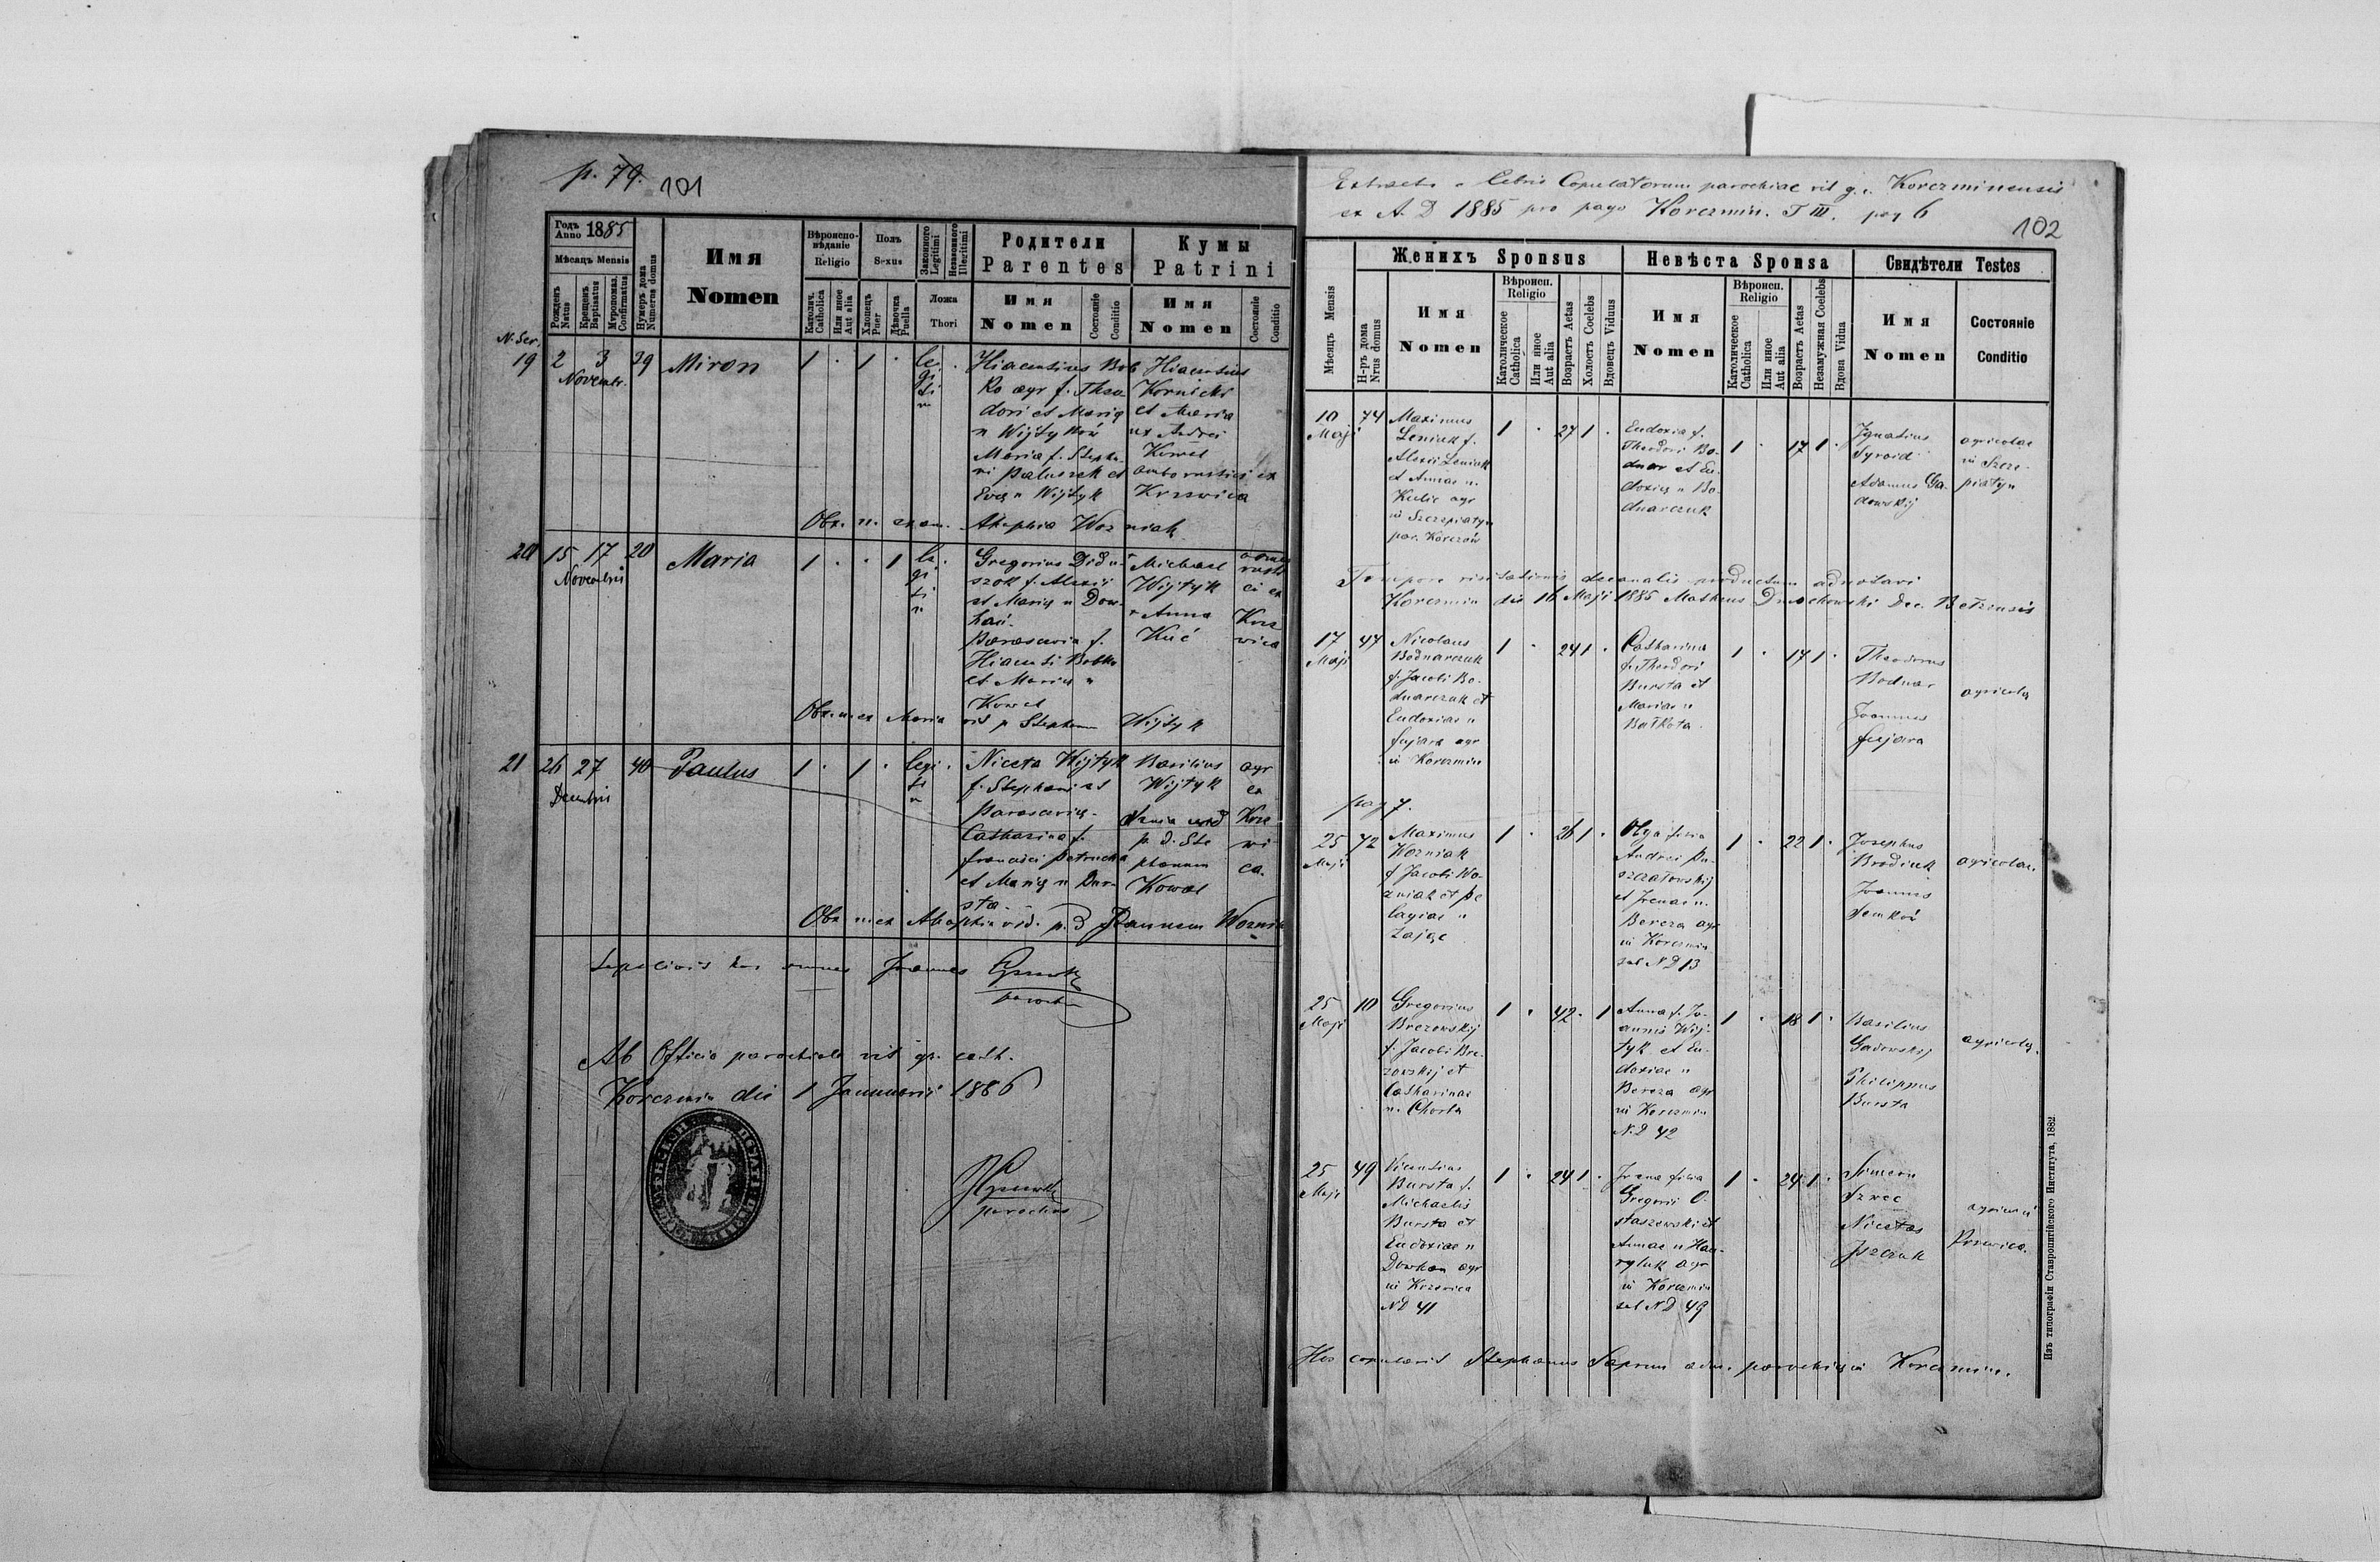 p. 79.
101
Годъ Anno 1885
Мѣсяцъ Mensis
Рожденъ Natus
Крещенъ Baptisatus
Мѵропомаз. Confirmatus
Нумеръ дома Numerus domus
Имя
Nomen
Вѣроисповѣданіе
Religio
Католич. Catholica
Или иное Aut alia
Полъ
Sexus
Хлопецъ Puer
Дѣвочка Puella
Законного Legitimi
Незаконного Illegitimi
Ложа
Thori
Родители
Parentes
Имя
Nomen
Состояніе
Conditio
Кумы
Patrini
Имя
Nomen
Состояніе
Conditio
N. Ser.
19 2 3 39 Miron 1 . 1 . le .
Novembr.
gi
ti
m
Hiacentius Bob
ko agr f. Theo
dori et Maria
n Wijtykow
Maria f. Stepha
ni Paluszek et
Eva n Wijtyk
Hiacentius
Kornicki
et Maria
ux Andrei
Kowal
ambo rustici ex
Krzewica
Obs. n. exam. Ahaphia Wozniak
20 15 17 20 Maria 1 . . 1 le .
Novembris
gi
ti
m
Gregorius Didu
szok f. Alexii
et Maria n Dow
hań
Parascevia f.
Hiacenti Bobko
et Maria n
Kowal
Michael
Wijtyk
+ Anna
Kuć
rusti
ci ex
Krze
wica
Obs. n. ex Maria vid p Stephanum Wijtyk
21 26 27 40 Paulus 1 . 1 . legi .
Decembris
ti
m
Niceta Wijtyk
f. Stephani et
Parascevia
Catharina f.
Francisci Petrucha
et Maria n Bur
sta
Basilius
Wijtyk
vid
p. d. Ste
phanum
Kowal
agr
ex
Krze
wi
ca.
Obs. n. ex Ahaphia vid. p. d Joannem Wozniak
hos omnes Joannes
parochus
Ab Officio parochiali rit gr. cath.
Korczmin die 1 Januarii 1886
parochus
Extractus e Libris Copulatorum parochiae rit g. c. Korczminensis
ex A. D 1885 pro pago Korczmin. T III. pag 6
102
Мѣсяцъ Mensis
Н-ръ дома Nrus domus
Женихъ Sponsus
Имя
Nomen
Вѣроисп.
Religio
Католическое Catholica
Или иное Aut alia
Возрастъ Aetas
Холостъ Coelebs
Вдовецъ Viduus
Невѣста Sponsa
Имя
Nomen
Вѣроисп.
Religio
Католическое Catholica
Или иное Aut alia
Возрастъ Aetas
Незамужная Coelebs
Вдова Vidua
Свидѣтели Testes
Имя
Nomen
Состояніе
Conditio
10 74
Maji
Maximus
Leniuk f.
Alexii Leniuk
et Annae n.
Kulic agr
in Szczepiatyn
par. Korczów
1 . 27 1 .
Eudoxia f.
Theodori Bo
dnar et Eu
doxiae n Bo
dnarczuk
1 . 17 1 .
Ignatius
Syroid
Adamus Ga
dowskij
agricolae
in Szcze
piatyn
Tempore visitationis decanalis productum adnotavi
Korczmin die 16 Maji 1885 Dec. Bełzensis
17 47
Maji
Nicolaus
Bodnarczuk
f. Jacobi Bo
dnarczuk et
Eudoxiae n
Fujara agr
in Korczmin
1 . 24 1 .
Catharina
f. Theodori
Bursta et
Mariae n
Bałkota
1 . 17 1 .
Theodorus
Bodnar
Joannes
Fujara
agricolae
pag 7.
25 72
Maji
Maximus
Wozniak
f Jacobi Wo
zniak et Pe
lagiae n
Zając
1 . 26 1 .
Olga filia
Andrei Pu
szczałowskij
et Irenae n.
Bereza agr
in Korczmin
sub N D 13
1 . 22 1 .
Josephus
Brodiuk
Joannes
Semków
agricolae.
25 10
Maji
Gregorius
Brezowskij
f. Jacobi Bre
zowskij et
Catharinae
n. Chorta
1 . 42 . 1
Anna f. Jo
annis Wij
tyk et Eu
doxiae n
Bereza agr
in Korczmin
N. D 42
1 . 18 1 .
Basilius
Gadowskij
Philippus
Bursta
agricolae.
25 49
Maji
Vicentius
Bursta f.
Michaelis
Bursta et
Eudoxiae n
Dowhan agr
in Krzewica
N D 41
1 . 24 1 .
Irena filia
Gregorii O
staszewski et
Annae n Haw
ryluk agr
in Korczmin
sub N D 49
1 . 24 1 .
Simeon
Szwec
Nicetas
Iszczuk
agricolae in
Krzewica.
Hos copulavit Stephanus Saprun adm. parochiae in Korczmin.
Изъ типографіи Ставропигійского Института, 1882